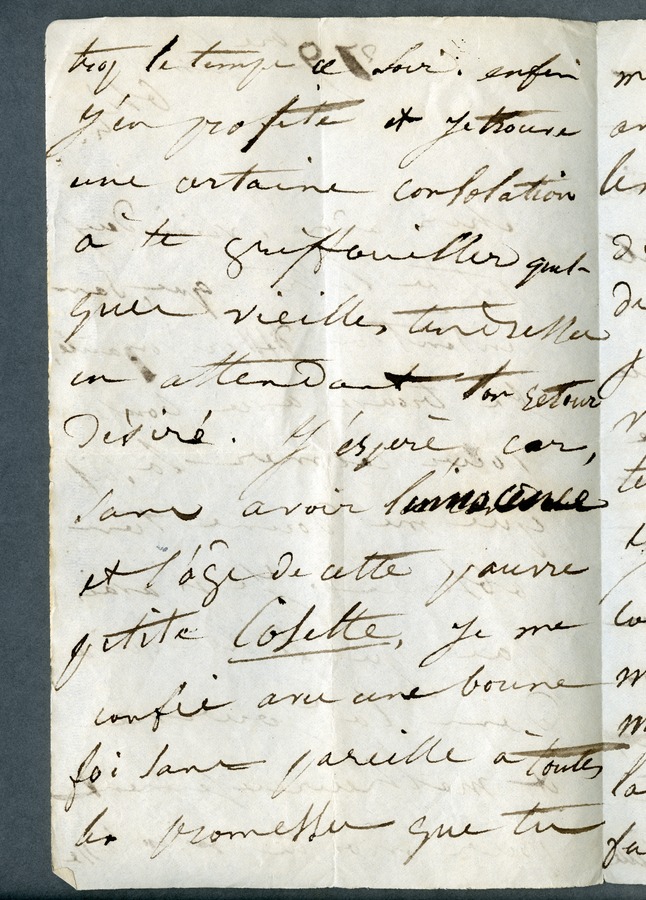 trop le temps ce soir. enfin
j'en profite et je trouve
une certaine consolation
à te griffouiller quel-
ques vieilles tendresses
en attendant ton retour
désiré. J'espère car,
sans avoir l'innocence
et l'âge de cette pauvre
petite Cosette, je me
confie avec une bonne
foi sans pareille à toutes
les promesses que tu